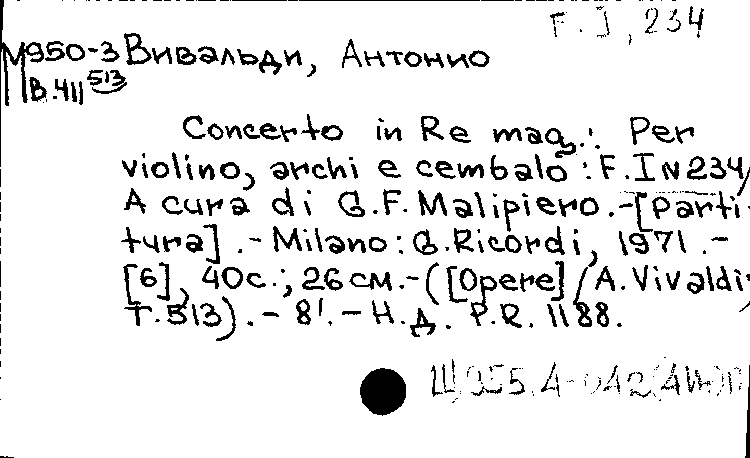 F. I, 234
М950-3 Вивальди, Антонио
В.411 513
Concerto in Re mag.: Per
violino, archi e cembalo : F. I N 234/
A cura di G.F. Malipiero.-[Parti-
tura].- Milano : G. Ricordi, 1971.-
[6], 40 с.; 26 см.-([Opere] / A. Vivaldi;
Т.513).- 8'.- Н.д. P.R. 1188.
Щ955.4-042(4Ит)